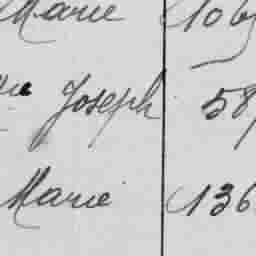 Marie 106
Joseph 58
Marie 136